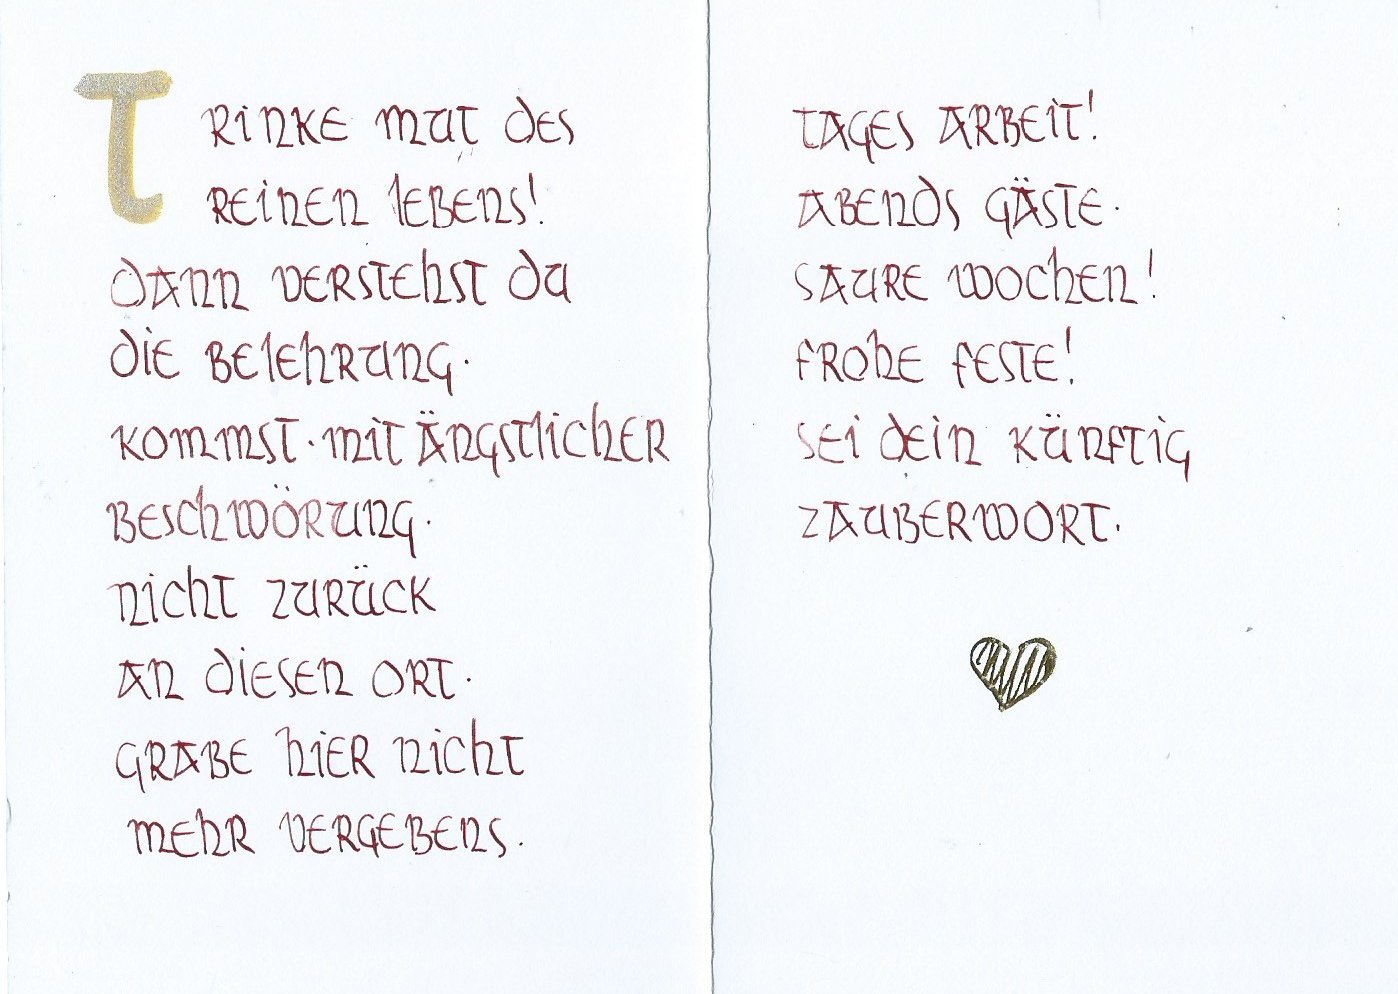 Trinke mut des
reinen lebens!
dann verstehst du
die belehrung.
kommst. mit ängstlicher
beschwörung.
nicht zurück
an diesen ort.
grabe hier nicht
mehr vergebens.
tages arbeit!
abends gäste.
saure wochen!
frohe feste!
sei dein künftig
zauberwort.